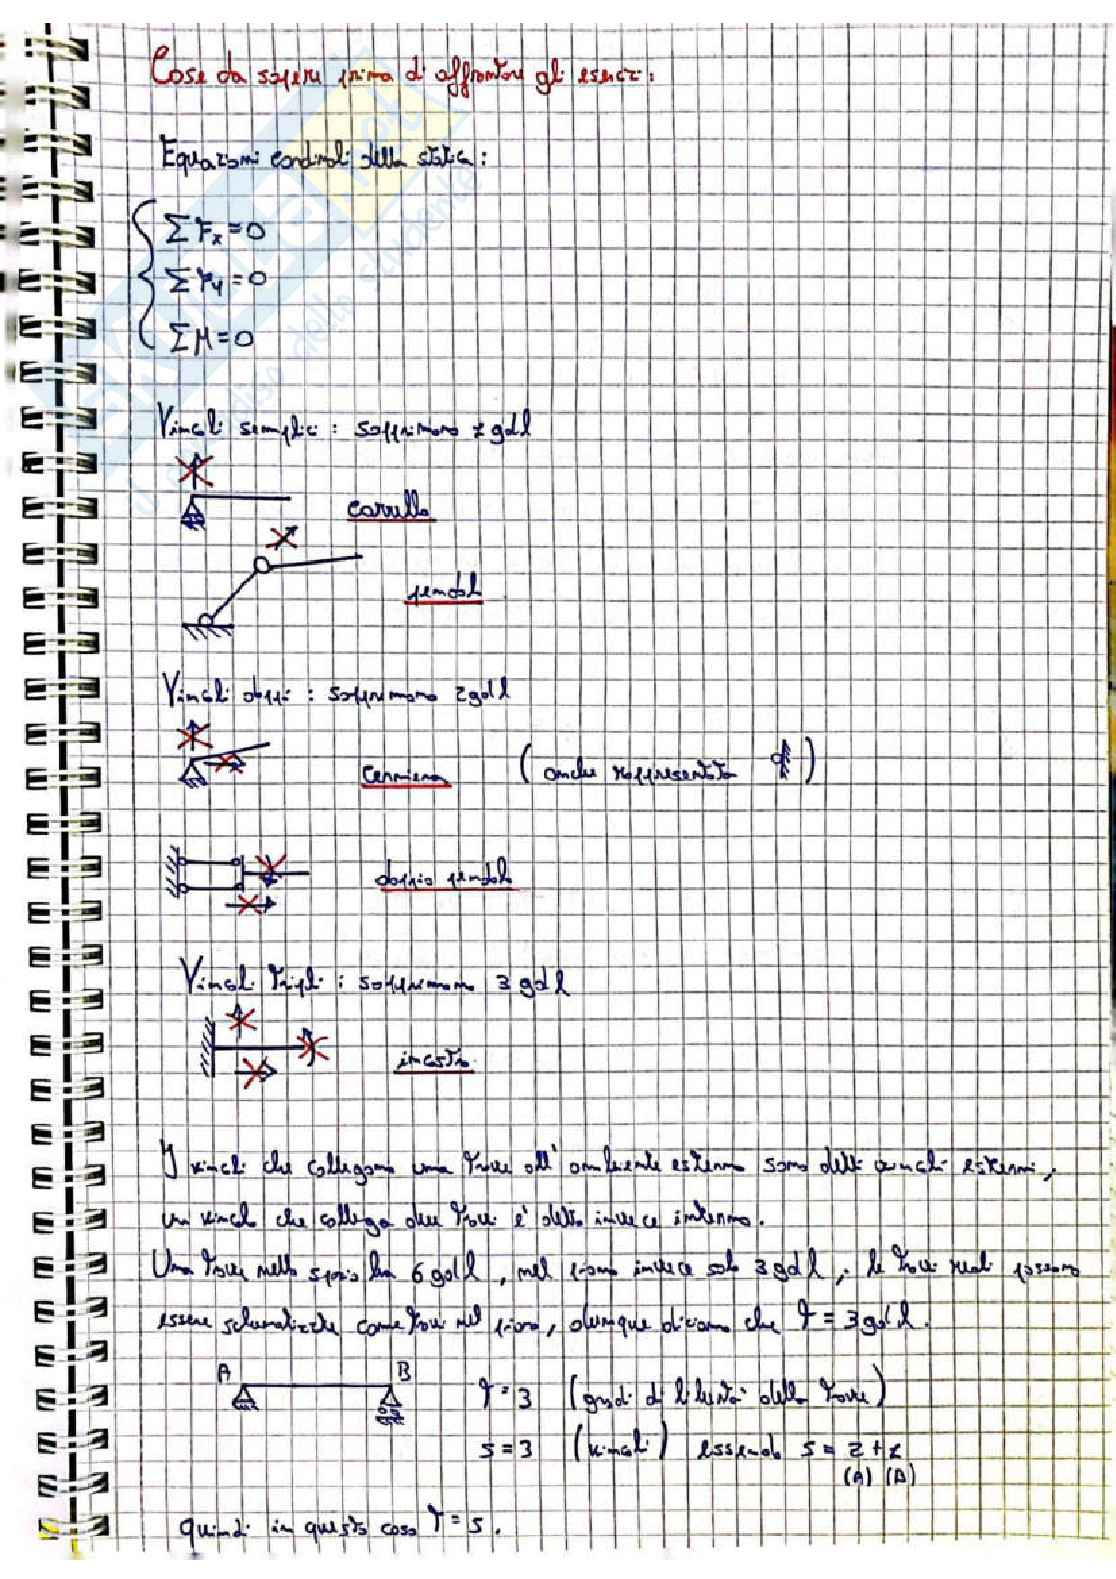 Cose da sapere prima di affrontare gli esercizi:
Equazioni cardinali della statica:
ΣFx=0
ΣFy=0
ΣM=0
Vincoli semplici: sopprimono 1 gdl
carrello
pendolo
Vincoli doppi: sopprimono 2 gdl
cerniera (anche rappresentata )
doppio pendolo
Vincoli Tripli: sopprimono 3 gdl
incastro
I vincoli che collegano una trave all'ambiente esterno sono detti vincoli esterni,
un vincolo che collega due travi è detto invece interno.
Una trave nello spazio ha 6 gdl, nel piano invece solo 3 gdl; le travi reali possono
essere schematizzate come travi nel piano, dunque diciamo che T = 3 gdl.
A B
T = 3 (gradi di libertà della trave)
s = 3 (vincoli) essendo s = 2 + 1
(A) (B)
quindi in questo caso T = s.